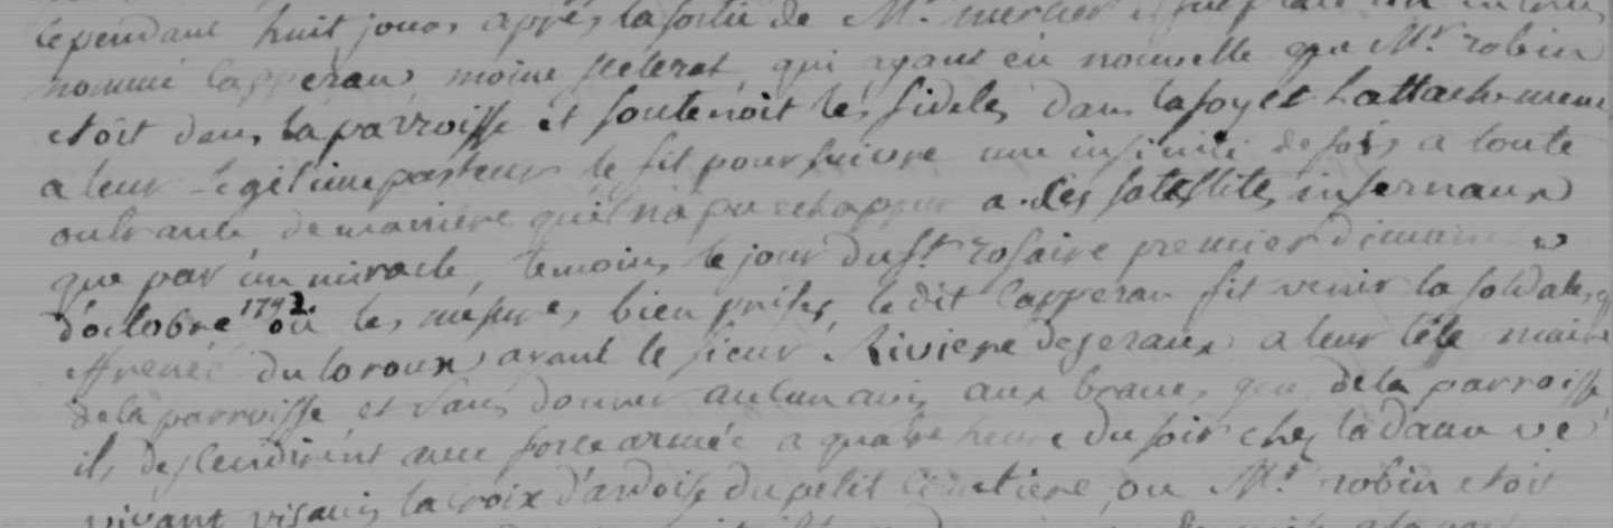 cependant huit jours apprés la sortie de Mr. mercier
nommé Capperau, moine scelerat, qui ayant eû nouvelle que Mr. robin
etoit dans la parroisse et soutenoit les fideles dans la foy et l'attachement
a leur legitime pasteur le fit poursuivre une infinité de fois a toute
outrance, de maniere qu'il n'a pu echapper a ses satellites infernaux
que par un miracle, temoins le jour du St. rosaire premier dimanche
d'octobre 1792. où les mesures bien prises, le dit Capperau fit venir la soldatesq
effrenée du loroux ayant le sieur Riviere dezeraux a leur tête maire
de la parroisse et sans donner aucun avis aux braves gens de la parroisse
ils descendirent avec force armée a quatre heure du soir chez la dame ve
vivant visavis la croix d'ardoise du petit cimetiere, ou Mr. robin etoit